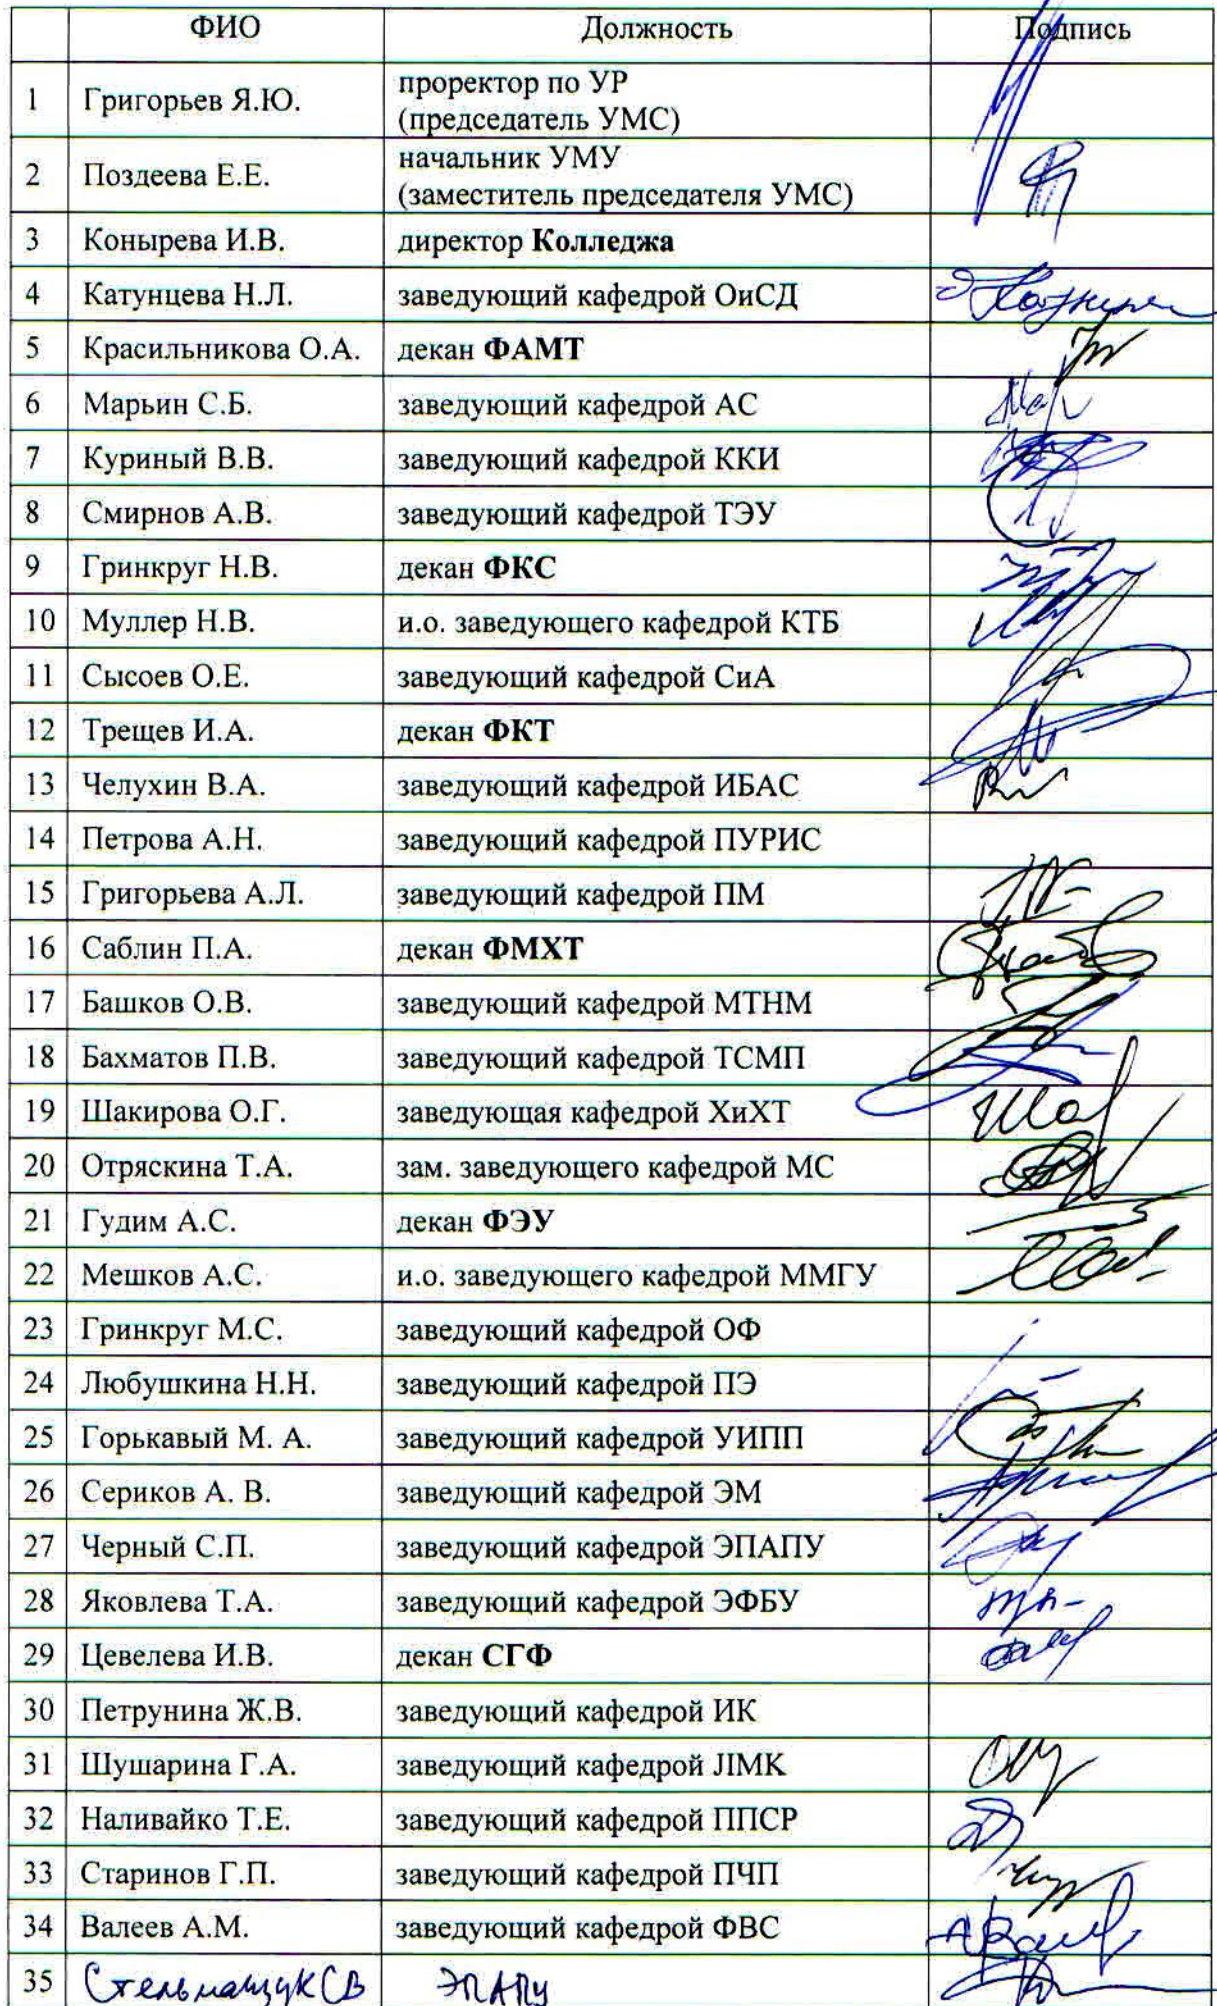 ФИО Должность Подпись
1 Григорьев Я.Ю. проректор по УР
(председатель УМС)
2 Поздеева Е.Е. начальник УМУ
(заместитель председателя УМС)
3 Конырева И.В. директор Колледжа
4 Катунцева Н.Л. заведующий кафедрой ОиСД
5 Красильникова О.А. декан ФАМТ
6 Марьин С.Б. заведующий кафедрой АС
7 Куриный В.В. заведующий кафедрой ККИ
8 Смирнов А.В. заведующий кафедрой ТЭУ
9 Гринкруг Н.В. декан ФКС
10 Муллер Н.В. и.о. заведующего кафедрой КТБ
11 Сысоев О.Е. заведующий кафедрой СиА
12 Трещев И.А. декан ФКТ
13 Челухин В.А. заведующий кафедрой ИБАС
14 Петрова А.Н. заведующий кафедрой ПУРИС
15 Григорьева А.Л. заведующий кафедрой ПМ
16 Саблин П.А. декан ФМХТ
17 Башков О.В. заведующий кафедрой МТНМ
18 Бахматов П.В. заведующий кафедрой ТСМП
19 Шакирова О.Г. заведующая кафедрой ХиХТ
20 Отряскина Т.А. зам. заведующего кафедрой МС
21 Гудим А.С. декан ФЭУ
22 Мешков А.С. и.о. заведующего кафедрой ММГУ
23 Гринкруг М.С. заведующий кафедрой ОФ
24 Любушкина Н.Н. заведующий кафедрой ПЭ
25 Горькавый М. А. заведующий кафедрой УИПП
26 Сериков А. В. заведующий кафедрой ЭМ
27 Черный С.П. заведующий кафедрой ЭПАПУ
28 Яковлева Т.А. заведующий кафедрой ЭФБУ
29 Цевелева И.В. декан СГФ
30 Петрунина Ж.В. заведующий кафедрой ИК
31 Шушарина Г.А. заведующий кафедрой ЛМК
32 Наливайко Т.Е. заведующий кафедрой ППСР
33 Старинов Г.П. заведующий кафедрой ПЧП
34 Валеев А.М. заведующий кафедрой ФВС
35 Стельмащук СВ ЭПАПУ